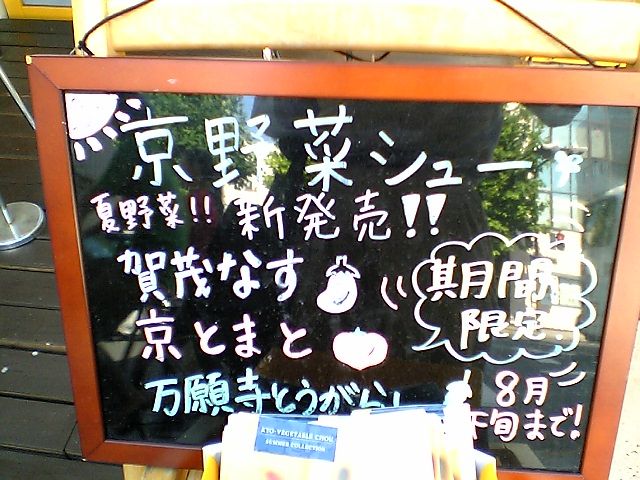 京野菜シュー
夏野菜!! 新発売!!
賀茂なす
京とまと
万願寺とうがらし
期間
限定
8月
下旬まで!
KYO-VEGETABLE CHOU
SUMMER COLLECTION